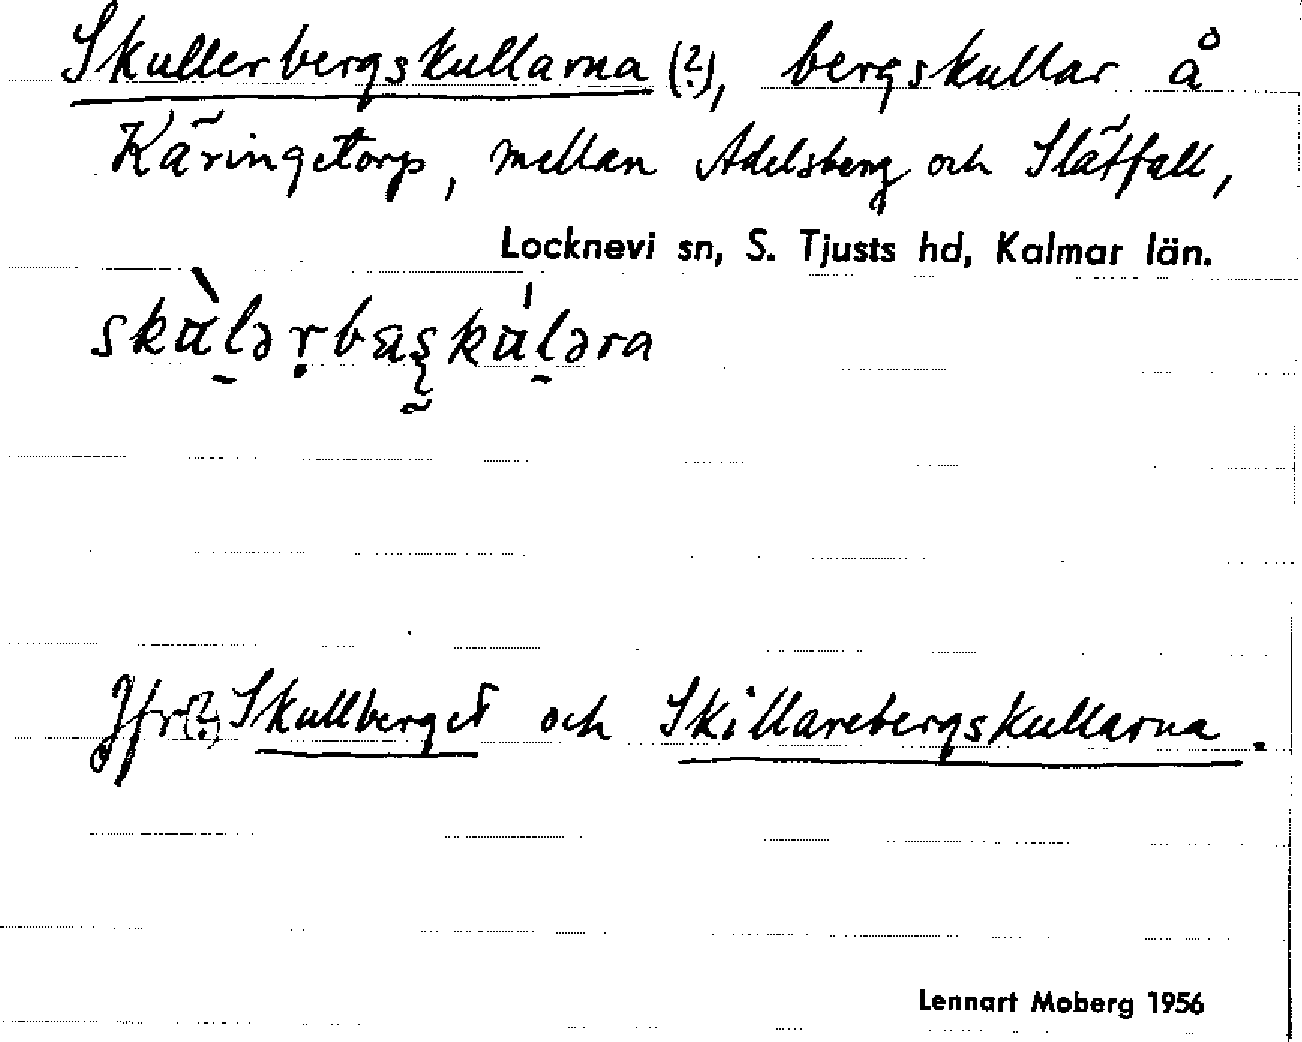 Skullerbergskullarna (?), bergskullar å
Käringetorp, mellan Adelsberg och Slätfall,
Locknevi sn, S. Tjusts hd, Kalmar län.
Jfr (?) Skullberget och Skillarebergskullarna.
Lennart Moberg 1956